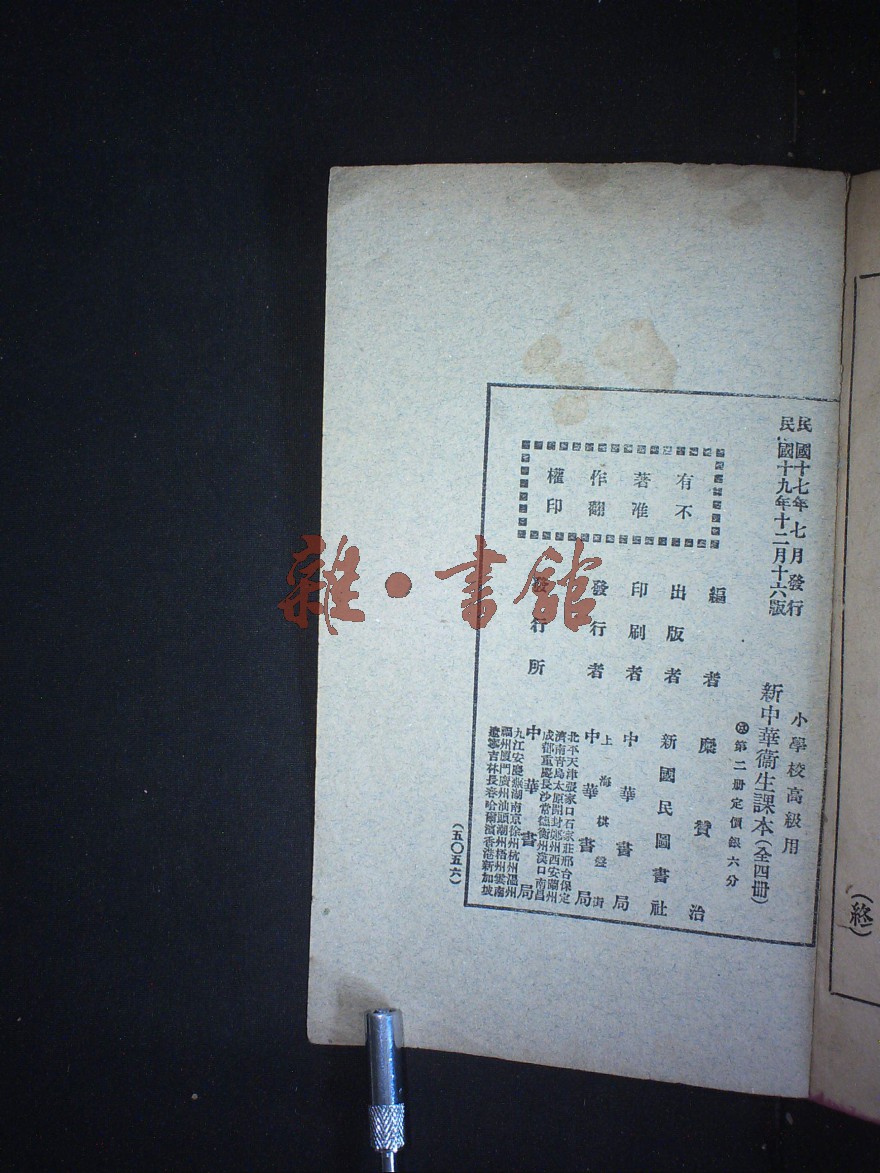 民國十七年七月發行
民國十九年十二月十六版
小學校高級用
新中華衞生課本(全四冊)
第二册定價銀六分
有著作權
不准翻印
編者 糜贊治
出版者 新國民圖書社
印刷者 中華書局
發行者 上海棋盤街 中華書局
發行所 中華書局
北平天津張家口石家莊邢台保定
濟南青島太原開封鄭州西安蘭州
成都重慶長沙常德衡州漢口南昌
九江安慶蕪湖南京徐州杭州溫州
福州廈門廣州汕頭潮州梧州雲南
遼寧吉林長春哈爾濱香港新加坡
(五〇五六)
(終)
雜·書館